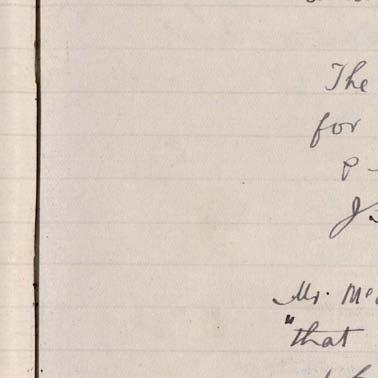 The
for
P
J.
Mr. Mc
"that